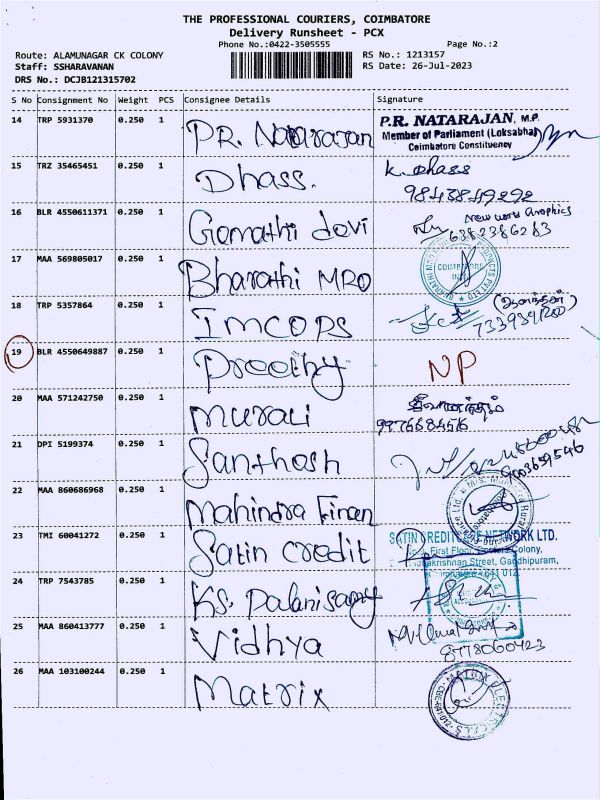 THE PROFESSIONAL COURIERS, COIMBATORE
Delivery Runsheet - PCX
Phone No.:0422-3505555 Page No.:2
Route: ALAMUNAGAR CK COLONY RS No.: 1213157
Staff: SSHARAVANAN RS Date: 26-Jul-2023
DRS No.: DCJB121315702
S No Consignment No Weight PCS Consignee Details Signature
14 TRP 5931370 0.250 1 P.R. Natarajan P.R. NATARAJAN, M.P.
Member of Parliament (Loksabha)
Coimbatore Constituency
15 TRZ 35465451 0.250 1 Dhass. K. Dhass
9843849292
16 BLR 4550611371 0.250 1 Gomathi devi New work Graphics
6382386283
17 MAA 569805017 0.250 1 Bharathi MRO
18 TRP 5357864 0.250 1 IMCOPS
19 BLR 4550649887 0.250 1 Preethy NP
20 MAA 571242750 0.250 1 Murali
9976684516
21 DPI 5199374 0.250 1 Santhosh
9003659546
22 MAA 860686968 0.250 1 Mahindra Finan
23 TMI 60041272 0.250 1 Satin credit SATIN CREDITCARE NETWORK LTD.
First Floor, Colony,
krishnan Street, Gandhipuram,
641 012
24 TRP 7543785 0.250 1 KS. Palanisamy
25 MAA 860413777 0.250 1 Vidhya
8778060423
26 MAA 103100244 0.250 1 Matrix MATRIX ELECTRICALS